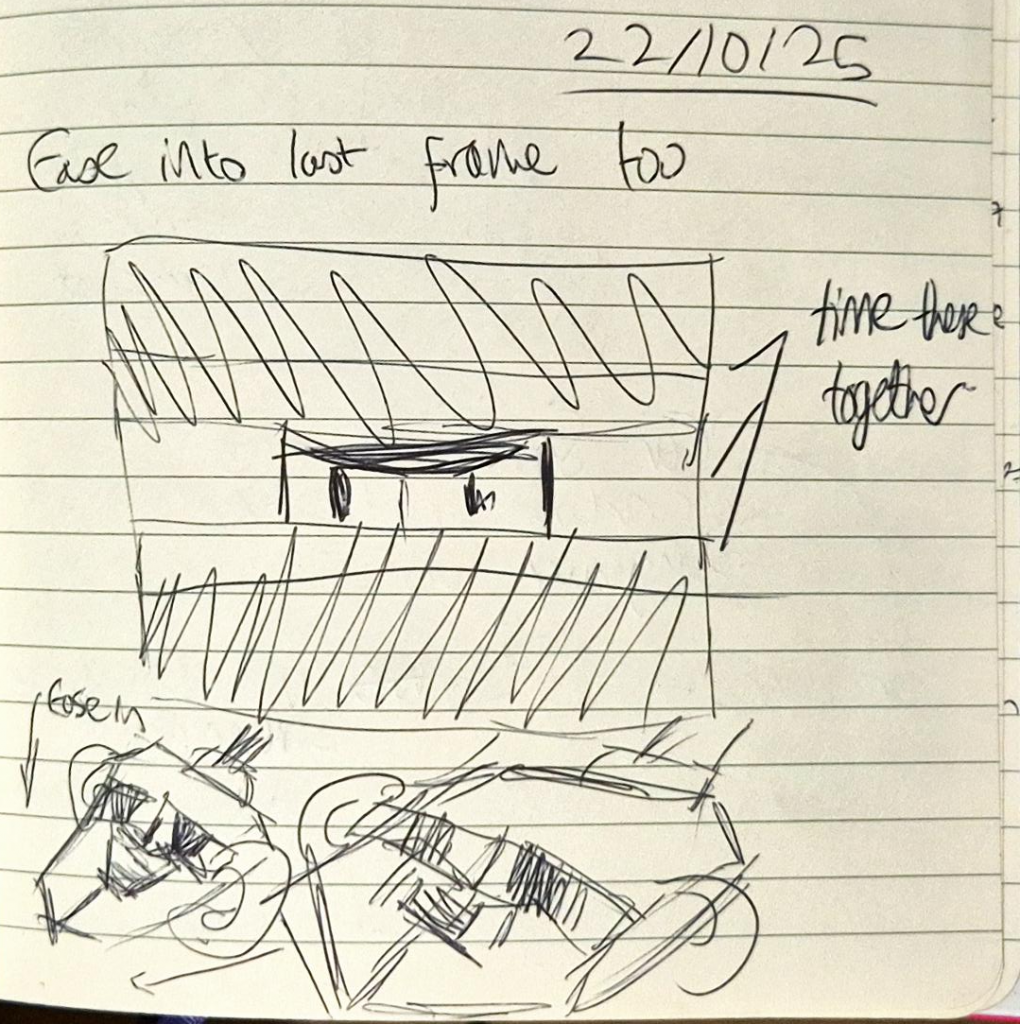 22/10/25
Ease into last frame too
time these
together
Ease in